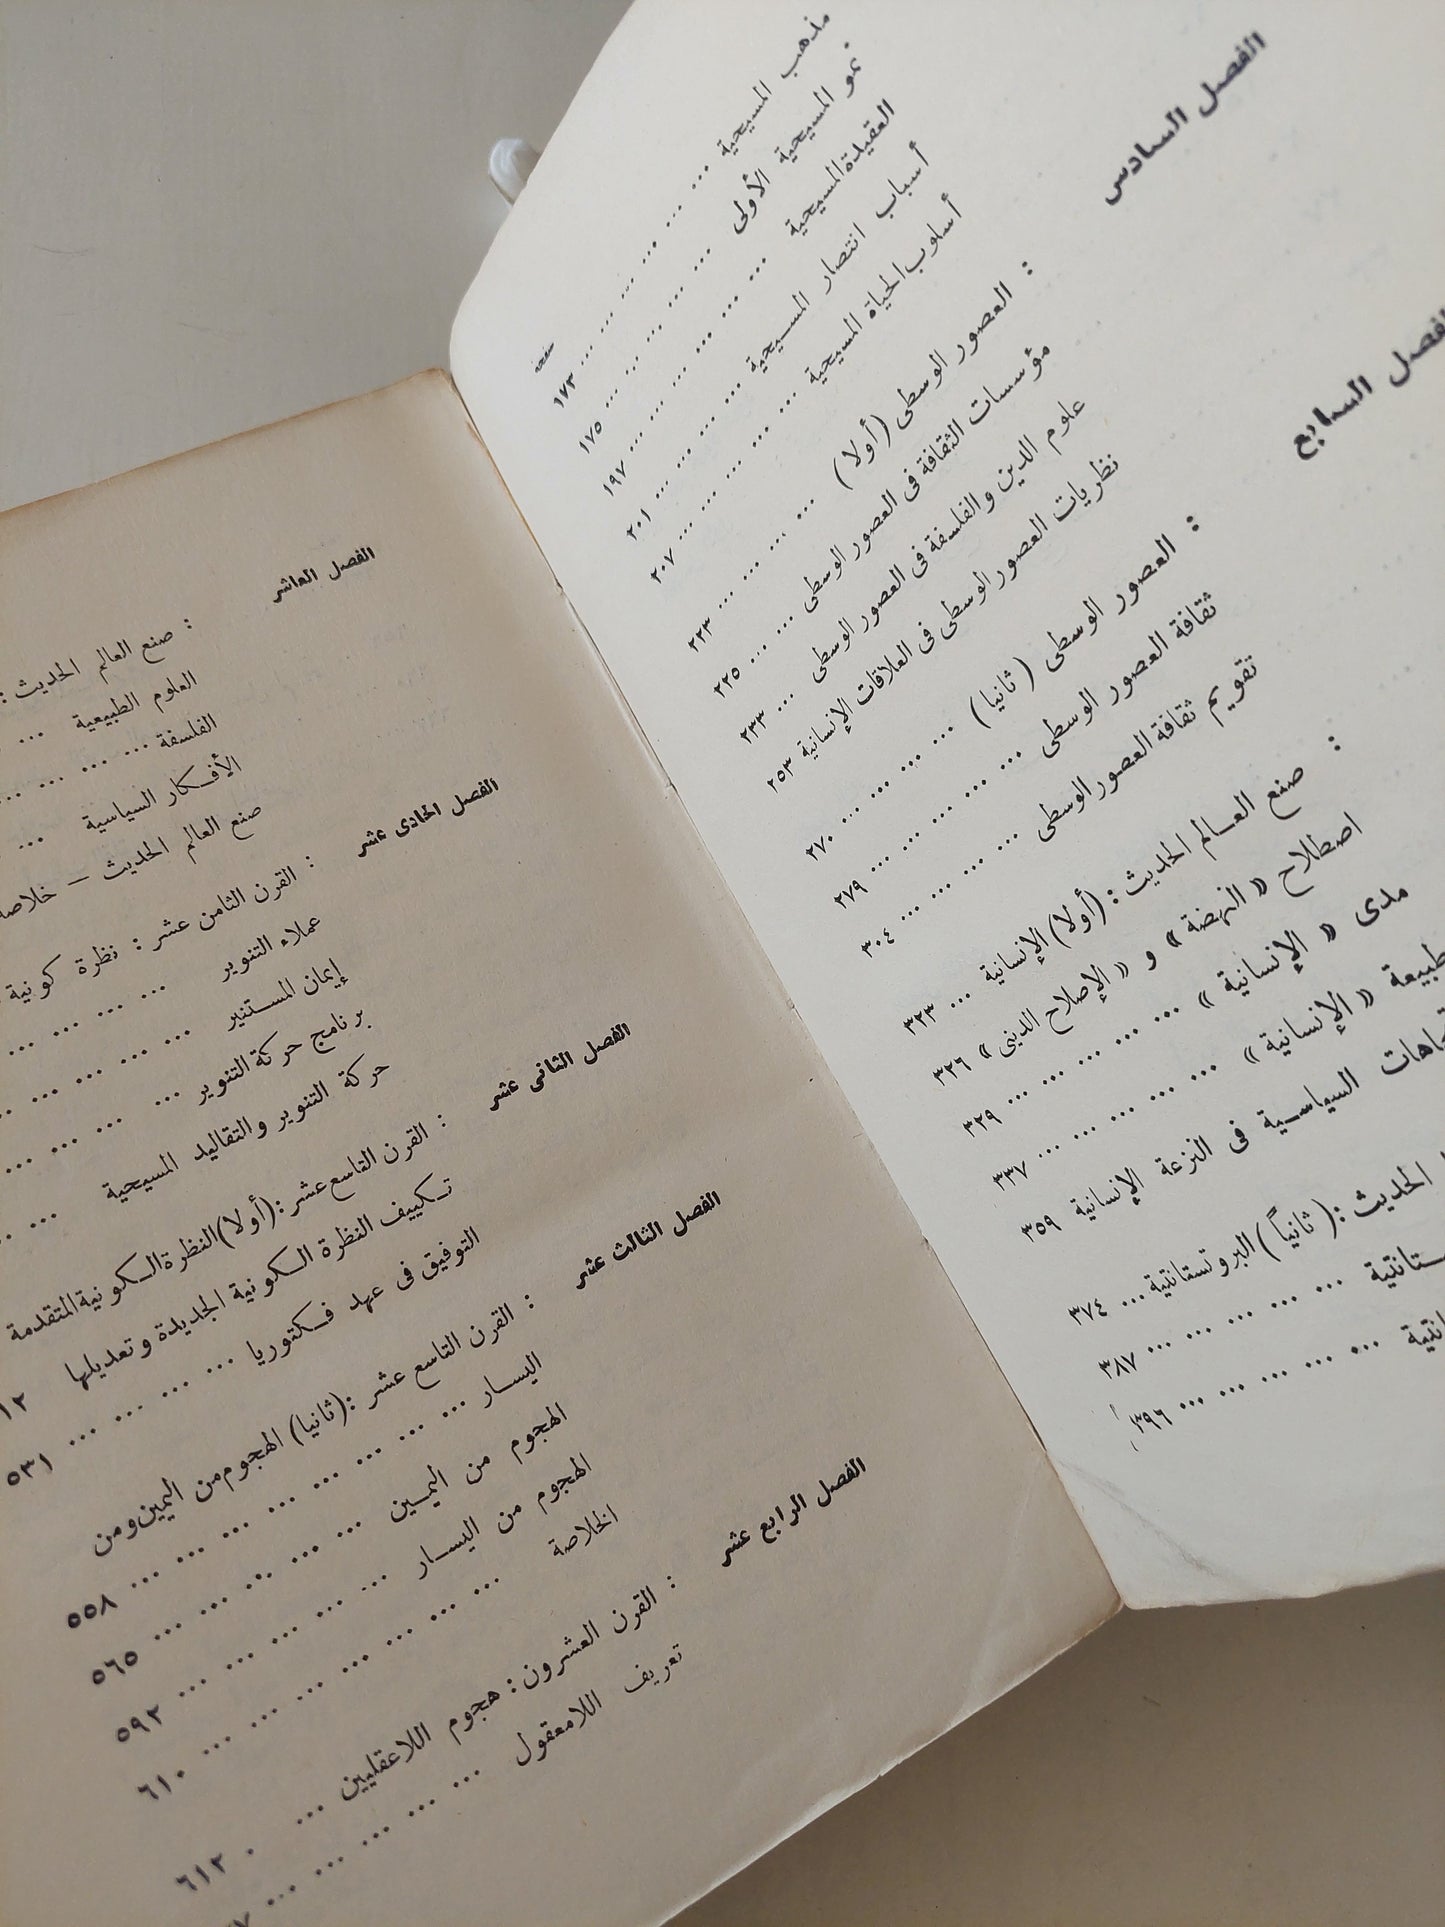 صفحة
مذهب المسيحية ... ... ... ... ... ... ١٧٣
نمو المسيحية الأولى ... ... ... ... ... ١٧٥
العقيدة المسيحية ... ... ... ... ... ... ١٩٧
أسباب انتصار المسيحية ... ... ... ... ٢٠١
أسلوب الحياة المسيحية ... ... ... ... ... ٢٠٧
الفصل السادس : العصور الوسطى (أولا) ... ... ... ... ... ٢٢٣
مؤسسات الثقافة فى العصور الوسطى ... ... ٢٢٥
علوم الدين والفلسفة فى العصور الوسطى ... ٢٣٣
نظريات العصور الوسطى فى العلاقات الإنسانية ٢٥٣
الفصل السابع : العصور الوسطى (ثانيا) ... ... ... ... ... ٢٧٠
ثقافة العصور الوسطى ... ... ... ... ... ٢٧٩
تقويم ثقافة العصور الوسطى ... ... ... ... ٣٠٤
: صنع العالم الحديث : (أولا) الإنسانية ... ٣٢٣
اصطلاح « النهضة » و « الإصلاح الدينى » ٣٢٦
مدى « الإنسانية » ... ... ... ... ... ٣٢٩
طبيعة « الإنسانية » ... ... ... ... ... ٣٣٧
السياسية فى النزعة الإنسانية ٣٥٩
الحديث : (ثانياً) البروتستانتية ... ٣٧٤
... ... ... ... ... ٣٨٧
... ... ... ... ... ٣٩٦
الفصل العاشر : صنع العالم الحديث :
العلوم الطبيعية ...
الفلسفة ... ... ... ...
الأفكار السياسية ...
صنع العالم الحديث – خلاصة
الفصل الحادى عشر : القرن الثامن عشر : نظرة كونية
عملاء التنوير ... ... ... ...
إيمان المستنير ... ... ... ... ...
برنامج حركة التنوير ... ... ... ... ...
حركة التنوير والتقاليد المسيحية ... ...
الفصل الثانى عشر : القرن التاسع عشر : (أولا) النظرة الكونية المتقدمة
تكييف النظرة الكونية الجديدة وتعديلها ١٢
التوفيق فى عهد فكتوريا ... ... ... ... ٥٣١
الفصل الثالث عشر : القرن التاسع عشر : (ثانيا) الهجوم من اليمين ومن
اليسار ... ... ... ... ... ... ... ... ٥٥٨
الهجوم من اليمين ... ... ... ... ... ٥٦٥
الهجوم من اليسار ... ... ... ... ... ٥٩٢
الخلاصة ... ... ... ... ... ... ... ٦١٠
الفصل الرابع عشر : القرن العشرون : هجوم اللاعقليين ... ٦١٢
تعريف اللامعقول ... ... ... ... ...